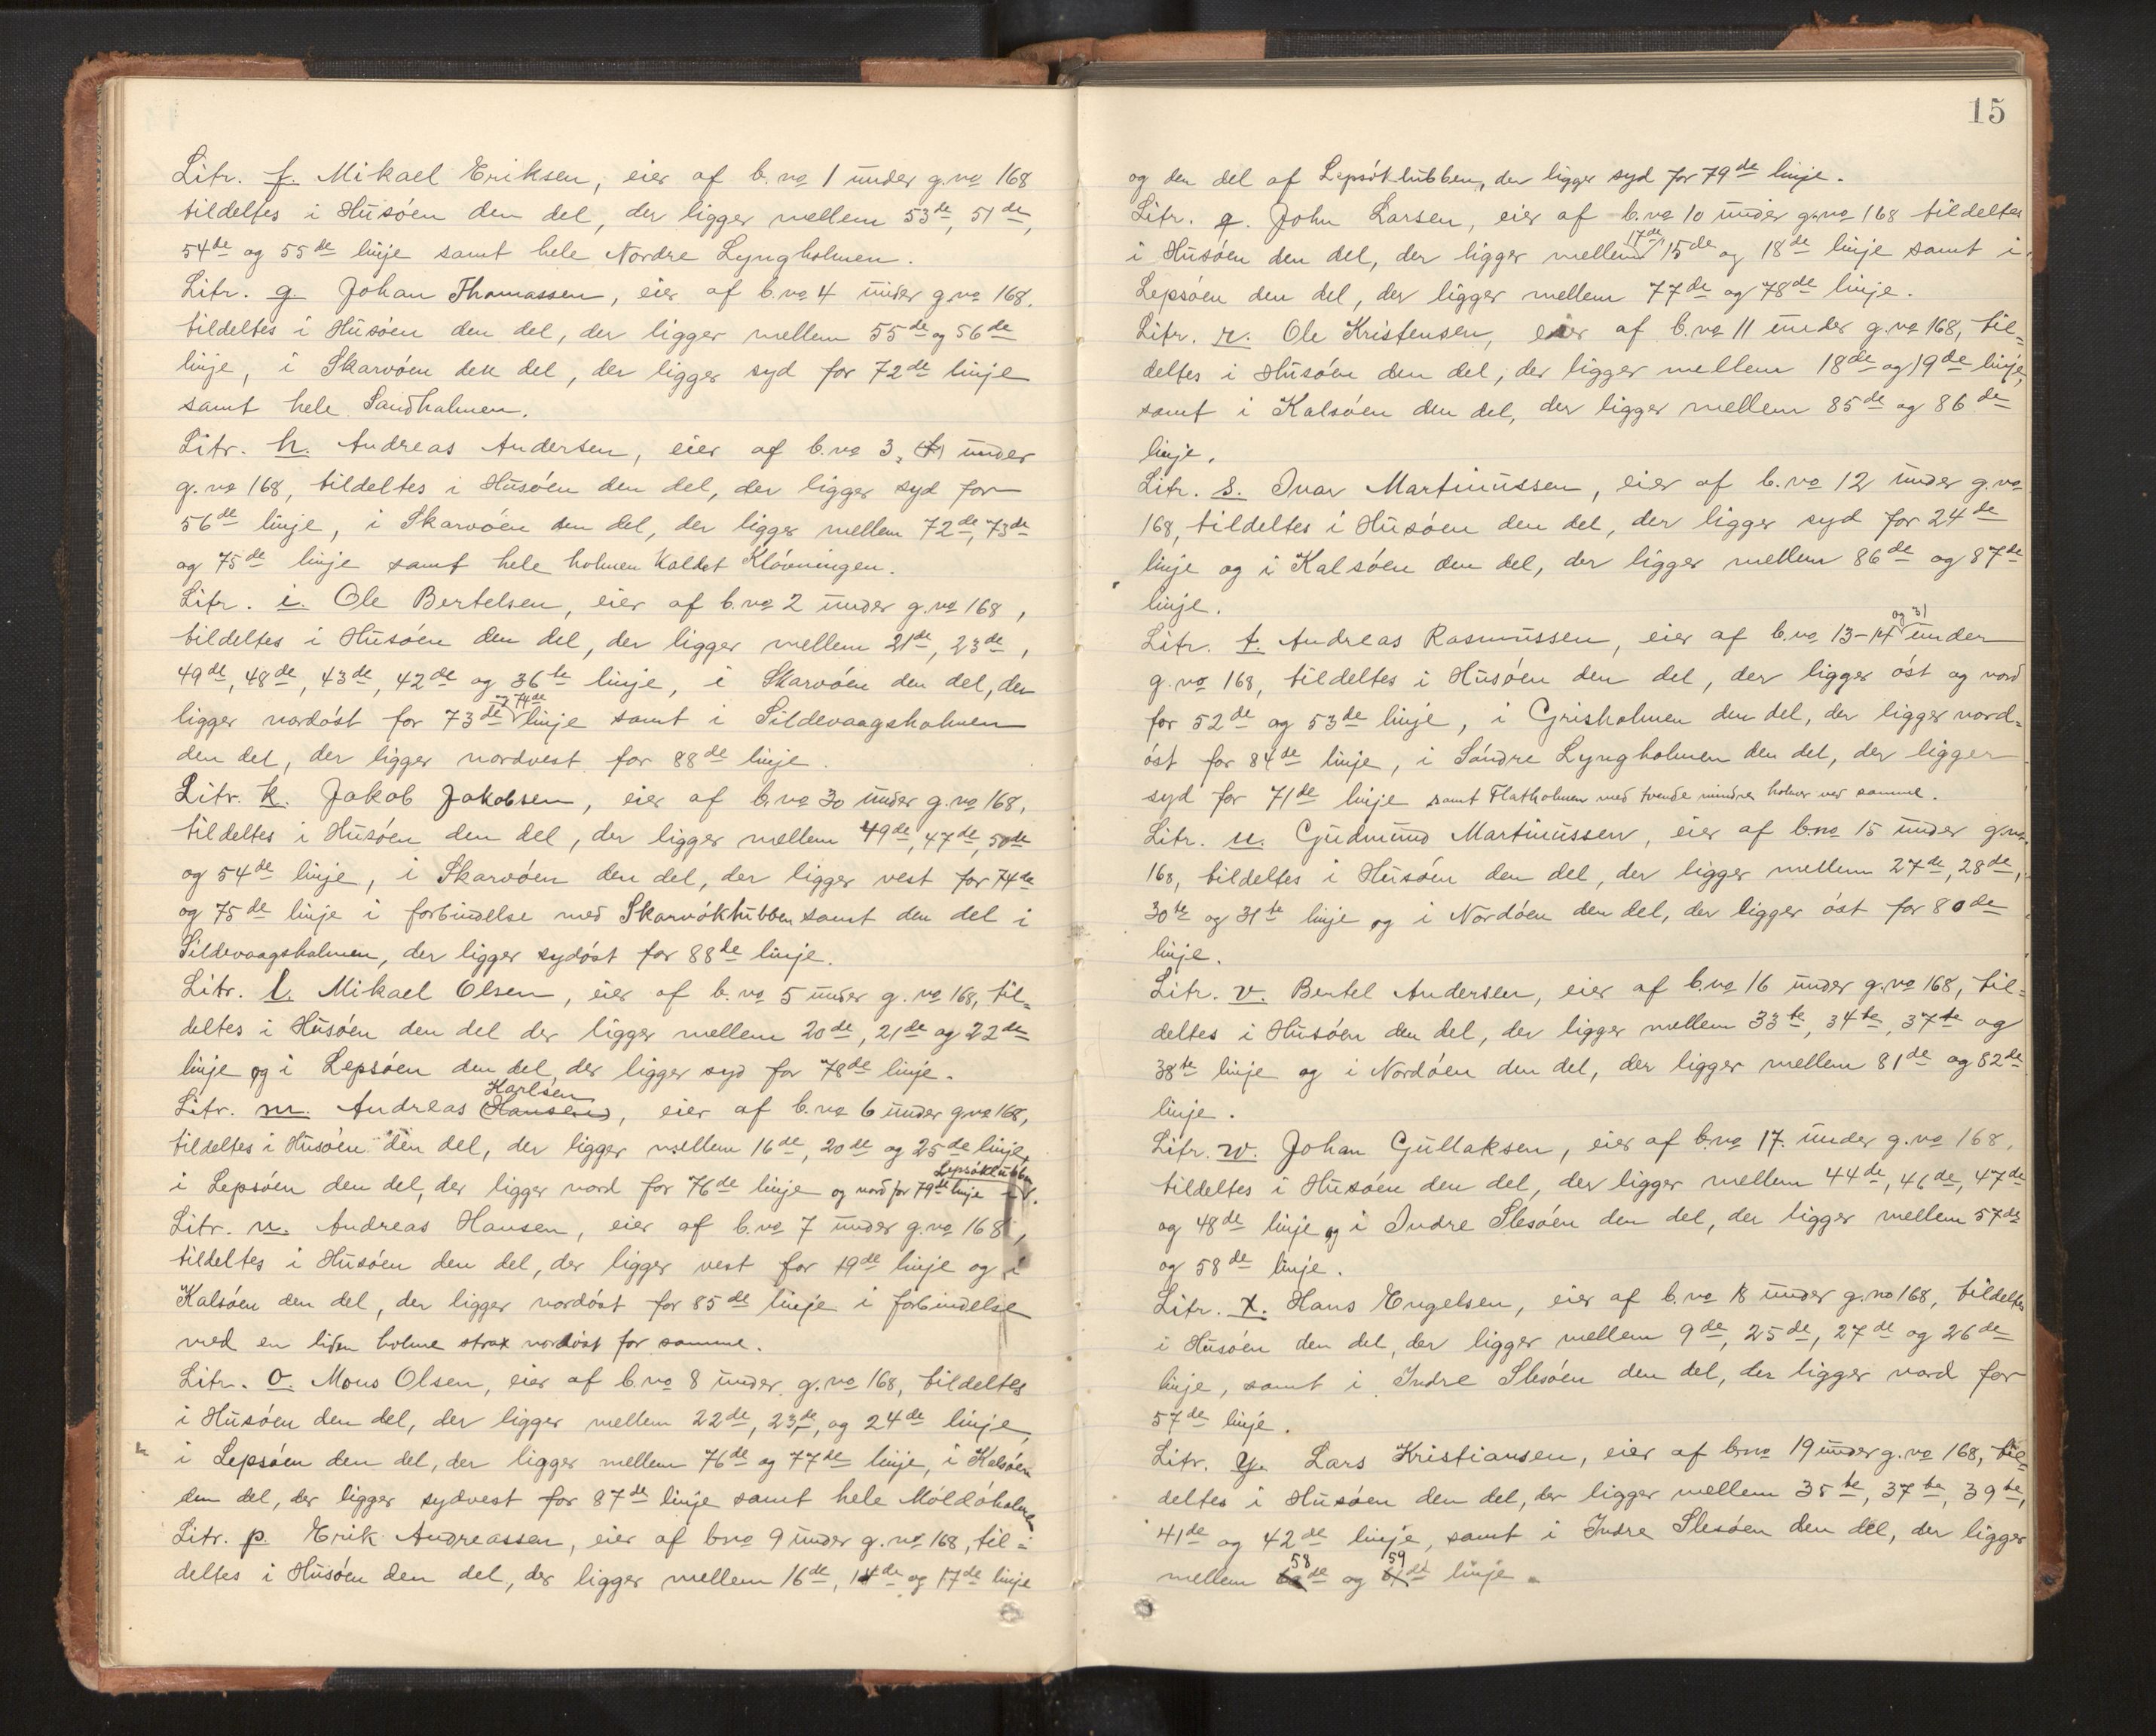 Litr. f. Mikael Eriksen, eier af b.no 1 under g.no 168
tildeltes i Husöen den del, der ligger mellem 53de, 51de,
54de og 55de linje samt hele Nordre Lyngholmen.
Litr. g. Johan Thomassen, eier af b.no 4 under g.no 168.
tildeltes i Husöen den del, der ligger mellem 55de og 56de
linje, i Skarvöen den del, der ligger syd for 72de linje
samt hele Sandholmen.
Litr. h. Andreas Andersen, eier af b.no 3, under
g.no 168, tildeltes i Husöen den del, der ligger syd for
56de linje, i Skarvöen den del, der ligger mellem 72de, 73de
og 75de linje samt hele holmen kaldet Klövningen.
Litr. i. Ole Bertelsen, eier af b.no 2 under g.no 168,
tildeltes i Husöen den del, der ligger mellem 21de, 23de,
49de, 48de, 43de, 42de og 36te linje, i Skarvöen den del, der
ligger nordöst for 73de og 74de linje samt i Sildevaagsholmen
den del, der ligger nordvest for 88de linje.
Litr. k. Jakob Jakobsen, eier af b.no 30 under g.no 168,
tildeltes i Husöen den del, der ligger mellem 49de, 47de, 50de
og 54de linje, i Skarvöen den del, der ligger vest for 74de
og 75de linje i forbindelse med Skarvöklubben samt den del i
Sildevaagsholmen, der ligger sydöst for 88de linje.
Litr. l. Mikael Olsen, eier af b.no 5 under g.no 168, til=
deltes i Husöen den del der ligger mellem 20de, 21de og 22de
linje og i Lepsöen den del, der ligger syd for 78de linje.
Litr. m. Andreas (Hansen) Karlsen, eier af b.no 6 under g.no 168,
tildeltes i Husöen den del, der ligger mellem 16de, 20de og 25de linje,
i Lepsöen den del, der ligger nord for 76de linje og nord for 79de linje Lepsöklubben
Litr. n. Andreas Hansen, eier af b.no 7 under g.no 168,
tildeltes i Husöen den del, der ligger vest for 19de linje og i
Kalsöen den del, der ligger nordöst for 85de linje i forbindelse
med en liden holme strax nordöst for samme.
Litr. o. Mons Olsen, eier af b.no 8 under g.no 168, tildeltes
i Husöen den del, der ligger mellem 22de, 23de, og 24de linje,
i Lepsöen den del, der ligger mellem 76de og 77de linje, i Kalsöen
den del, der ligger sydvest for 87de linje samt hele Möldöholmen
Litr. p. Erik Andreassen, eier af b.no 9 under g.no 168, til=
deltes i Husöen den del, der ligger mellem 16de, 14de og 17de linje
15
og den del af Lepsöklubben, der ligger syd for 79de linje.
Litr. q. John Larsen, eier af b.no 10 under g.no 168 tildeltes
i Husöen den del, der ligger mellem 17de, 15de og 18de linje samt i
Lepsöen den del, der ligger mellem 77de og 78de linje.
Litr. r. Ole Kristensen, eier af b.no 11 under g.no 168, til=
deltes i Husöen den del, der ligger mellem 18de og 19de linje,
samt i Kalsöen den del, der ligger mellem 85de og 86de
linje.
Litr. s. Ivar Martinussen, eier af b.no 12 under g.no
168, tildeltes i Husöen den del, der ligger syd for 24de
linje og i Kalsöen den del, der ligger mellem 86de og 87de
linje.
Litr. t. Andreas Rasmussen, eier af b.no 13-14 og 31 under
g.no 168, tildeltes i Husöen den del, der ligger öst og nord
for 52de og 53de linje, i Grisholmen den del, der ligger nord=
öst for 84de linje, i Söndre Lyngholmen den del, der ligger
syd for 71de linje samt Flatholmen med tvende mindre holmer ved samme.
Litr. u. Gudmund Martinussen, eier af b.no 15 under g.no.
168, tildeltes i Husöen den del, der ligger mellem 27de, 28de,
30te og 31te linje og i Nordöen den del, der ligger öst for 80de
linje.
Litr. v. Bertel Andersen, eier af b.no 16 under g.no 168, til=
deltes i Husöen den del, der ligger mellem 33te, 34te, 37te og
38te linje og i Nordöen den del, der ligger mellem 81de og 82de
linje.
Litr. w. Johan Gullaksen, eier af b.no 17. under g.no 168.
tildeltes i Husöen den del, der ligger mellem 44de, 46de, 47de
og 48de linje og i Indre Slesöen den del, der ligger mellem 57de
og 58de linje.
Litr. x. Hans Engelsen, eier af b.no 18 under g.no 168, tildeltes
i Husöen den del, der ligger mellem 9de, 25de, 27de og 26de
linje, samt i Indre Slesöen den del, der ligger nord for
57de linje.
Litr. y. Lars Kristiansen, eier af b.no 19 under g.no 168, til=
deltes i Husöen den del, der ligger mellem 35te, 37te, 39te,
41de og 42de linje, samt i Indre Slesöen den del, der ligger
mellem 58de og 59de linje.